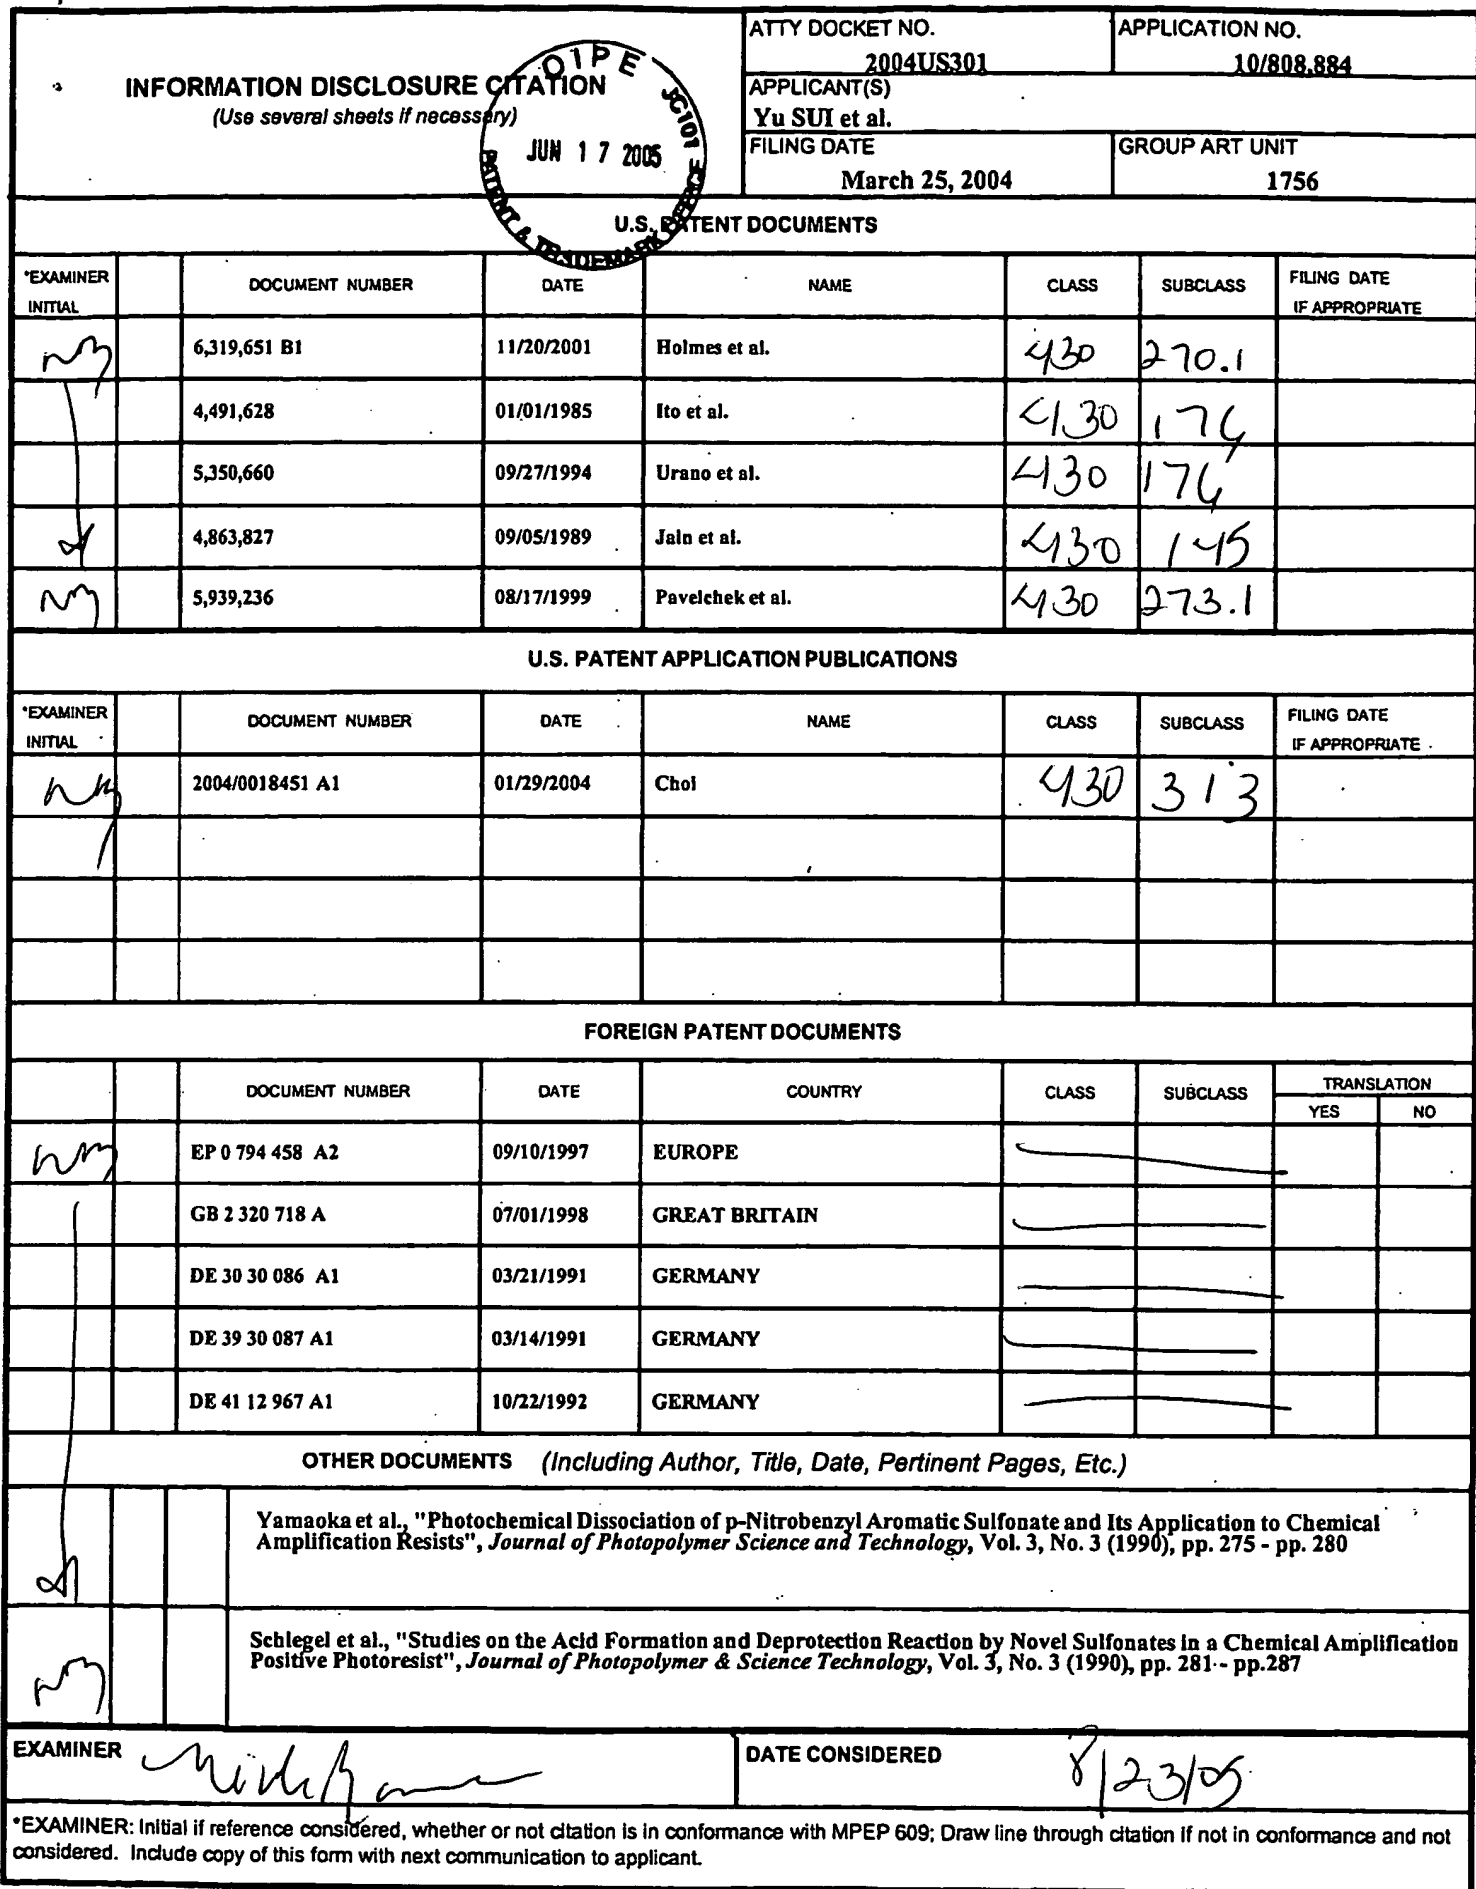 ATTY DOCKET NO.
2004US301
APPLICATION NO.
10/808,884
INFORMATION DISCLOSURE CITATION
(Use several sheets if necessary)
OIPE JC101
JUN 17 2005
PATENT & TRADEMARK OFFICE
APPLICANT(S)
Yu SUI et al.
FILING DATE
March 25, 2004
GROUP ART UNIT
1756
U.S. PATENT DOCUMENTS
*EXAMINER INITIAL DOCUMENT NUMBER DATE NAME CLASS SUBCLASS FILING DATE IF APPROPRIATE
6,319,651 B1 11/20/2001 Holmes et al. 430 270.1
4,491,628 01/01/1985 Ito et al. 430 176
5,350,660 09/27/1994 Urano et al. 430 176
4,863,827 09/05/1989 Jain et al. 430 145
5,939,236 08/17/1999 Pavelchek et al. 430 273.1
U.S. PATENT APPLICATION PUBLICATIONS
*EXAMINER INITIAL DOCUMENT NUMBER DATE NAME CLASS SUBCLASS FILING DATE IF APPROPRIATE
2004/0018451 A1 01/29/2004 Choi 430 313
FOREIGN PATENT DOCUMENTS
DOCUMENT NUMBER DATE COUNTRY CLASS SUBCLASS TRANSLATION
YES NO
EP 0 794 458 A2 09/10/1997 EUROPE
GB 2 320 718 A 07/01/1998 GREAT BRITAIN
DE 30 30 086 A1 03/21/1991 GERMANY
DE 39 30 087 A1 03/14/1991 GERMANY
DE 41 12 967 A1 10/22/1992 GERMANY
OTHER DOCUMENTS (Including Author, Title, Date, Pertinent Pages, Etc.)
Yamaoka et al., "Photochemical Dissociation of p-Nitrobenzyl Aromatic Sulfonate and Its Application to Chemical
Amplification Resists", Journal of Photopolymer Science and Technology, Vol. 3, No. 3 (1990), pp. 275 - pp. 280
Schlegel et al., "Studies on the Acid Formation and Deprotection Reaction by Novel Sulfonates in a Chemical Amplification
Positive Photoresist", Journal of Photopolymer & Science Technology, Vol. 3, No. 3 (1990), pp. 281 - pp.287
EXAMINER
DATE CONSIDERED 8/23/05
*EXAMINER: Initial if reference considered, whether or not citation is in conformance with MPEP 609; Draw line through citation if not in conformance and not
considered. Include copy of this form with next communication to applicant.